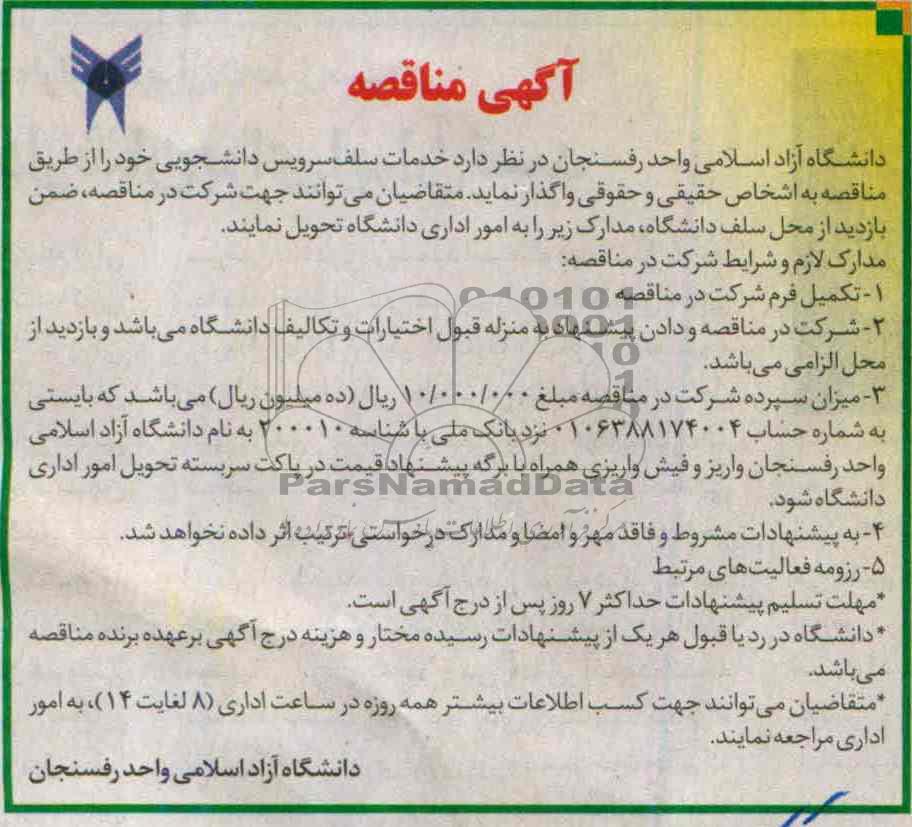 آگهی مناقصه
دانشگاه آزاد اسلامی واحد رفسنجان در نظر دارد خدمات سلف‌سرویس دانشجویی خود را از طریق
مناقصه به اشخاص حقیقی و حقوقی واگذار نماید. متقاضیان می‌توانند جهت شرکت در مناقصه، ضمن
بازدید از محل سلف دانشگاه، مدارک زیر را به امور اداری دانشگاه تحویل نمایند.
مدارک لازم و شرایط شرکت در مناقصه:
۱- تکمیل فرم شرکت در مناقصه
۲- شرکت در مناقصه و دادن پیشنهاد به منزله قبول اختیارات و تکالیف دانشگاه می‌باشد و بازدید از
محل الزامی می‌باشد.
۳- میزان سپرده شرکت در مناقصه مبلغ ۱۰/۰۰۰/۰۰۰ ریال (ده میلیون ریال) می‌باشد که بایستی
به شماره حساب ۰۱۰۶۳۸۸۱۷۴۰۰۴ نزد بانک ملی با شناسه ۲۰۰۰۱۰ به نام دانشگاه آزاد اسلامی
واحد رفسنجان واریز و فیش واریزی همراه با برگه پیشنهاد قیمت در پاکت سربسته تحویل امور اداری
ParsNamadData
دانشگاه شود.
۴- به پیشنهادات مشروط و فاقد مهر و امضا و مدارک درخواستی ترتیب اثر داده نخواهد شد.
۵- رزومه فعالیت‌های مرتبط
*مهلت تسلیم پیشنهادات حداکثر ۷ روز پس از درج آگهی است.
*دانشگاه در رد یا قبول هر یک از پیشنهادات رسیده مختار و هزینه درج آگهی برعهده برنده مناقصه
می‌باشد.
*متقاضیان می‌توانند جهت کسب اطلاعات بیشتر همه روزه در ساعت اداری (۸ لغایت ۱۴)، به امور
اداری مراجعه نمایند.
دانشگاه آزاد اسلامی واحد رفسنجان